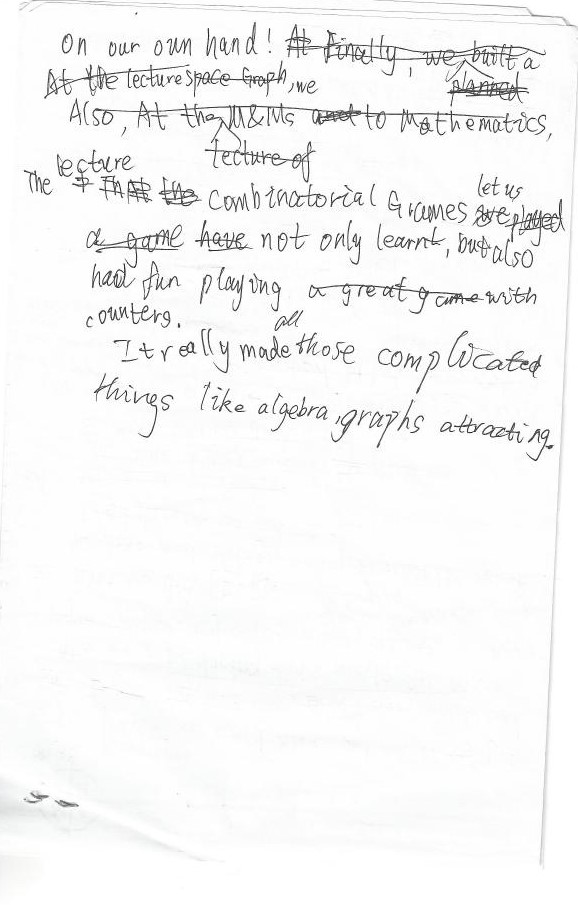 On our own hand! At Finally, we built a
At the lecture space Graph, we planned
Also, At the M&Ms and to Mathematics,
lecture of
The lecture I That the Combinatorial Grames let us we played
a game have not only learnt, but also
had fun playing a great game with
counters.
It really made all those complicated
things like algebra, graphs attracting.